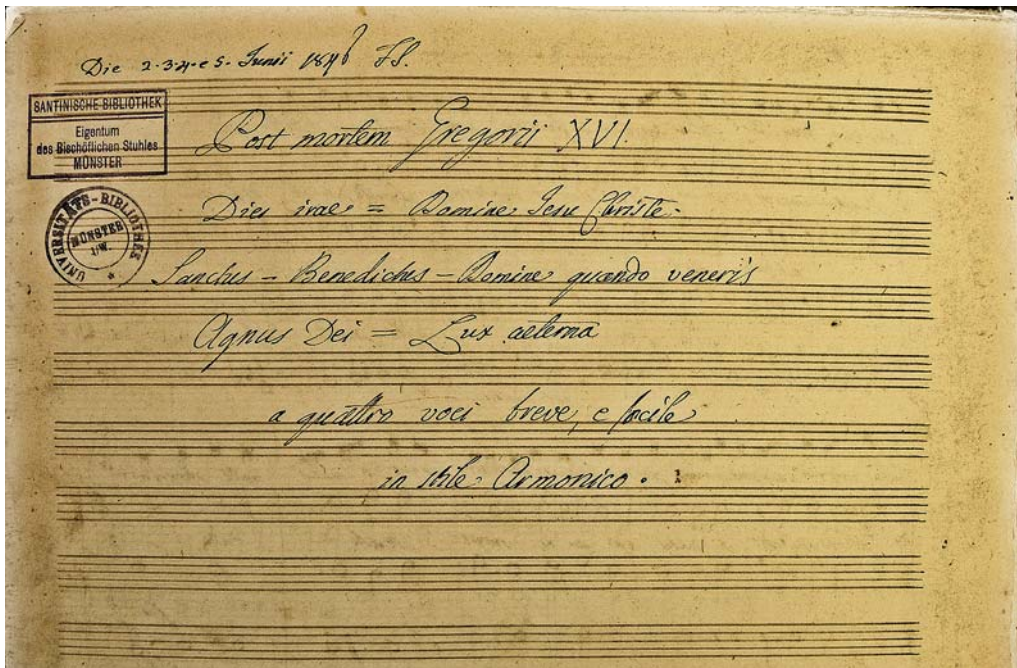 Die 2-3-4-e 5. Junii 1846 FS.
SANTINISCHE BIBLIOTHEK
Eigentum
des Bischöflichen Stuhles
MÜNSTER
Post mortem Gregorii XVI.
UNIVERSITÄTS-BIBLIOTHEK
MÜNSTER
I/W.
Dies irae = Domine Jesu Christe -
Sanctus - Benedictus - Domine quando veneris
Agnus Dei = Lux aeterna
a quattro voci breve, e facile
in stile Armonico.